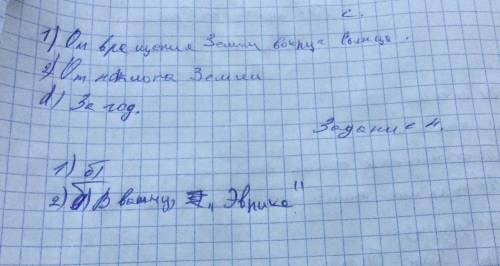 с.
1) От вращения Земли вокруг Солнца.
2) От наклона Земли
d) За год.
Задание 4.
1) б)
2) б) В ванну, „Эврика"